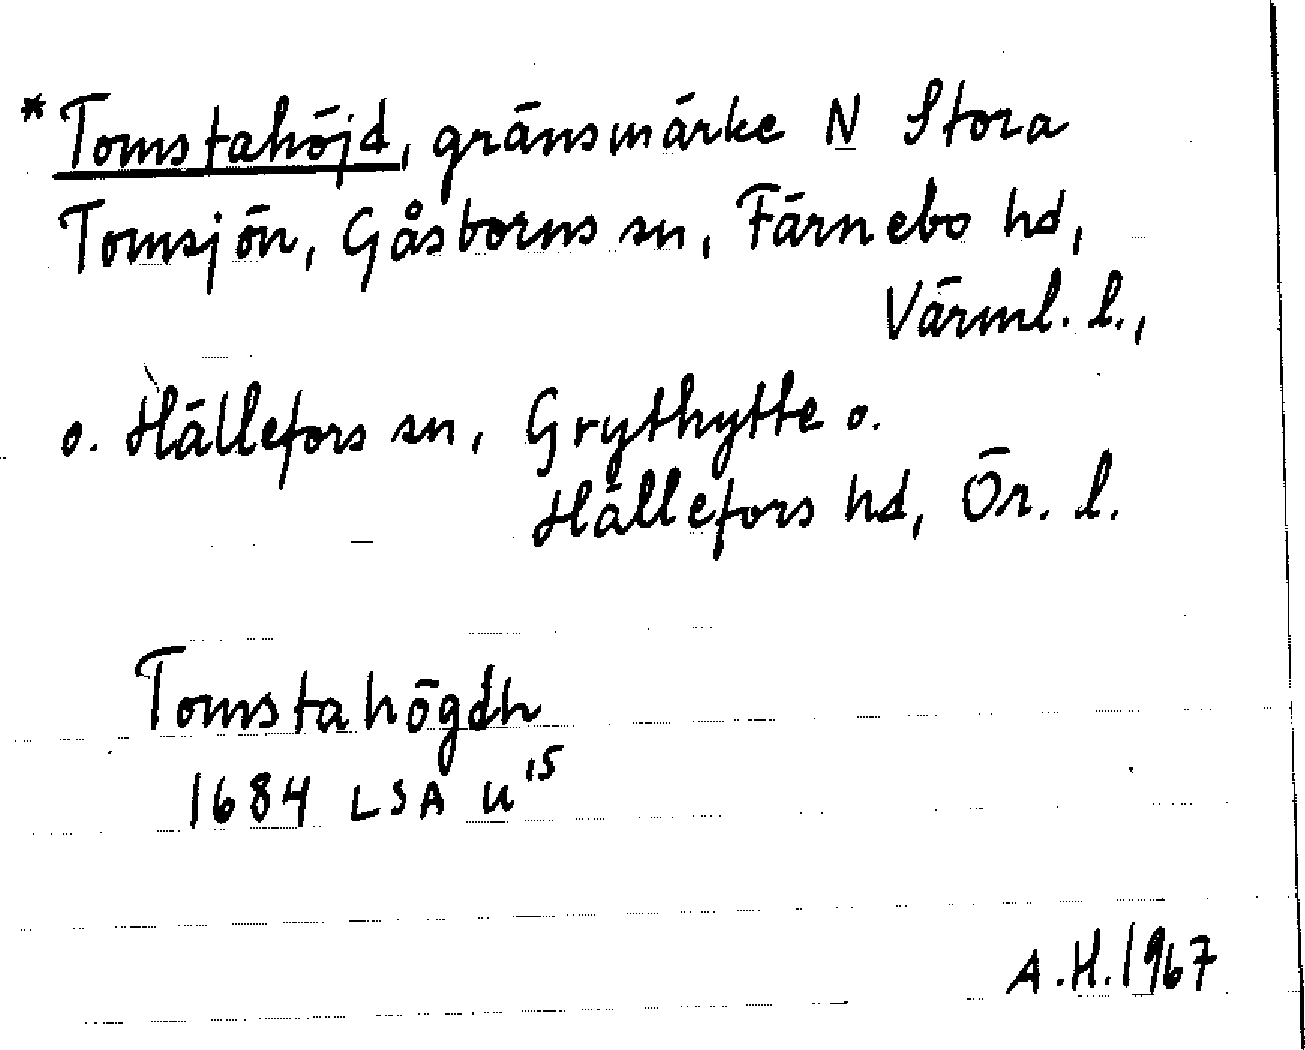 *Tomstahöjd, gränsmärke N Stora
Tomsjön, Gåsborns sn, Färnebo hd,
Värml. l.,
o. Hällefors sn, Grythytte o.
Hällefors hd, Ör. l.
Tomstahögdh
1684 LSA U¹⁵
A.H. 1967